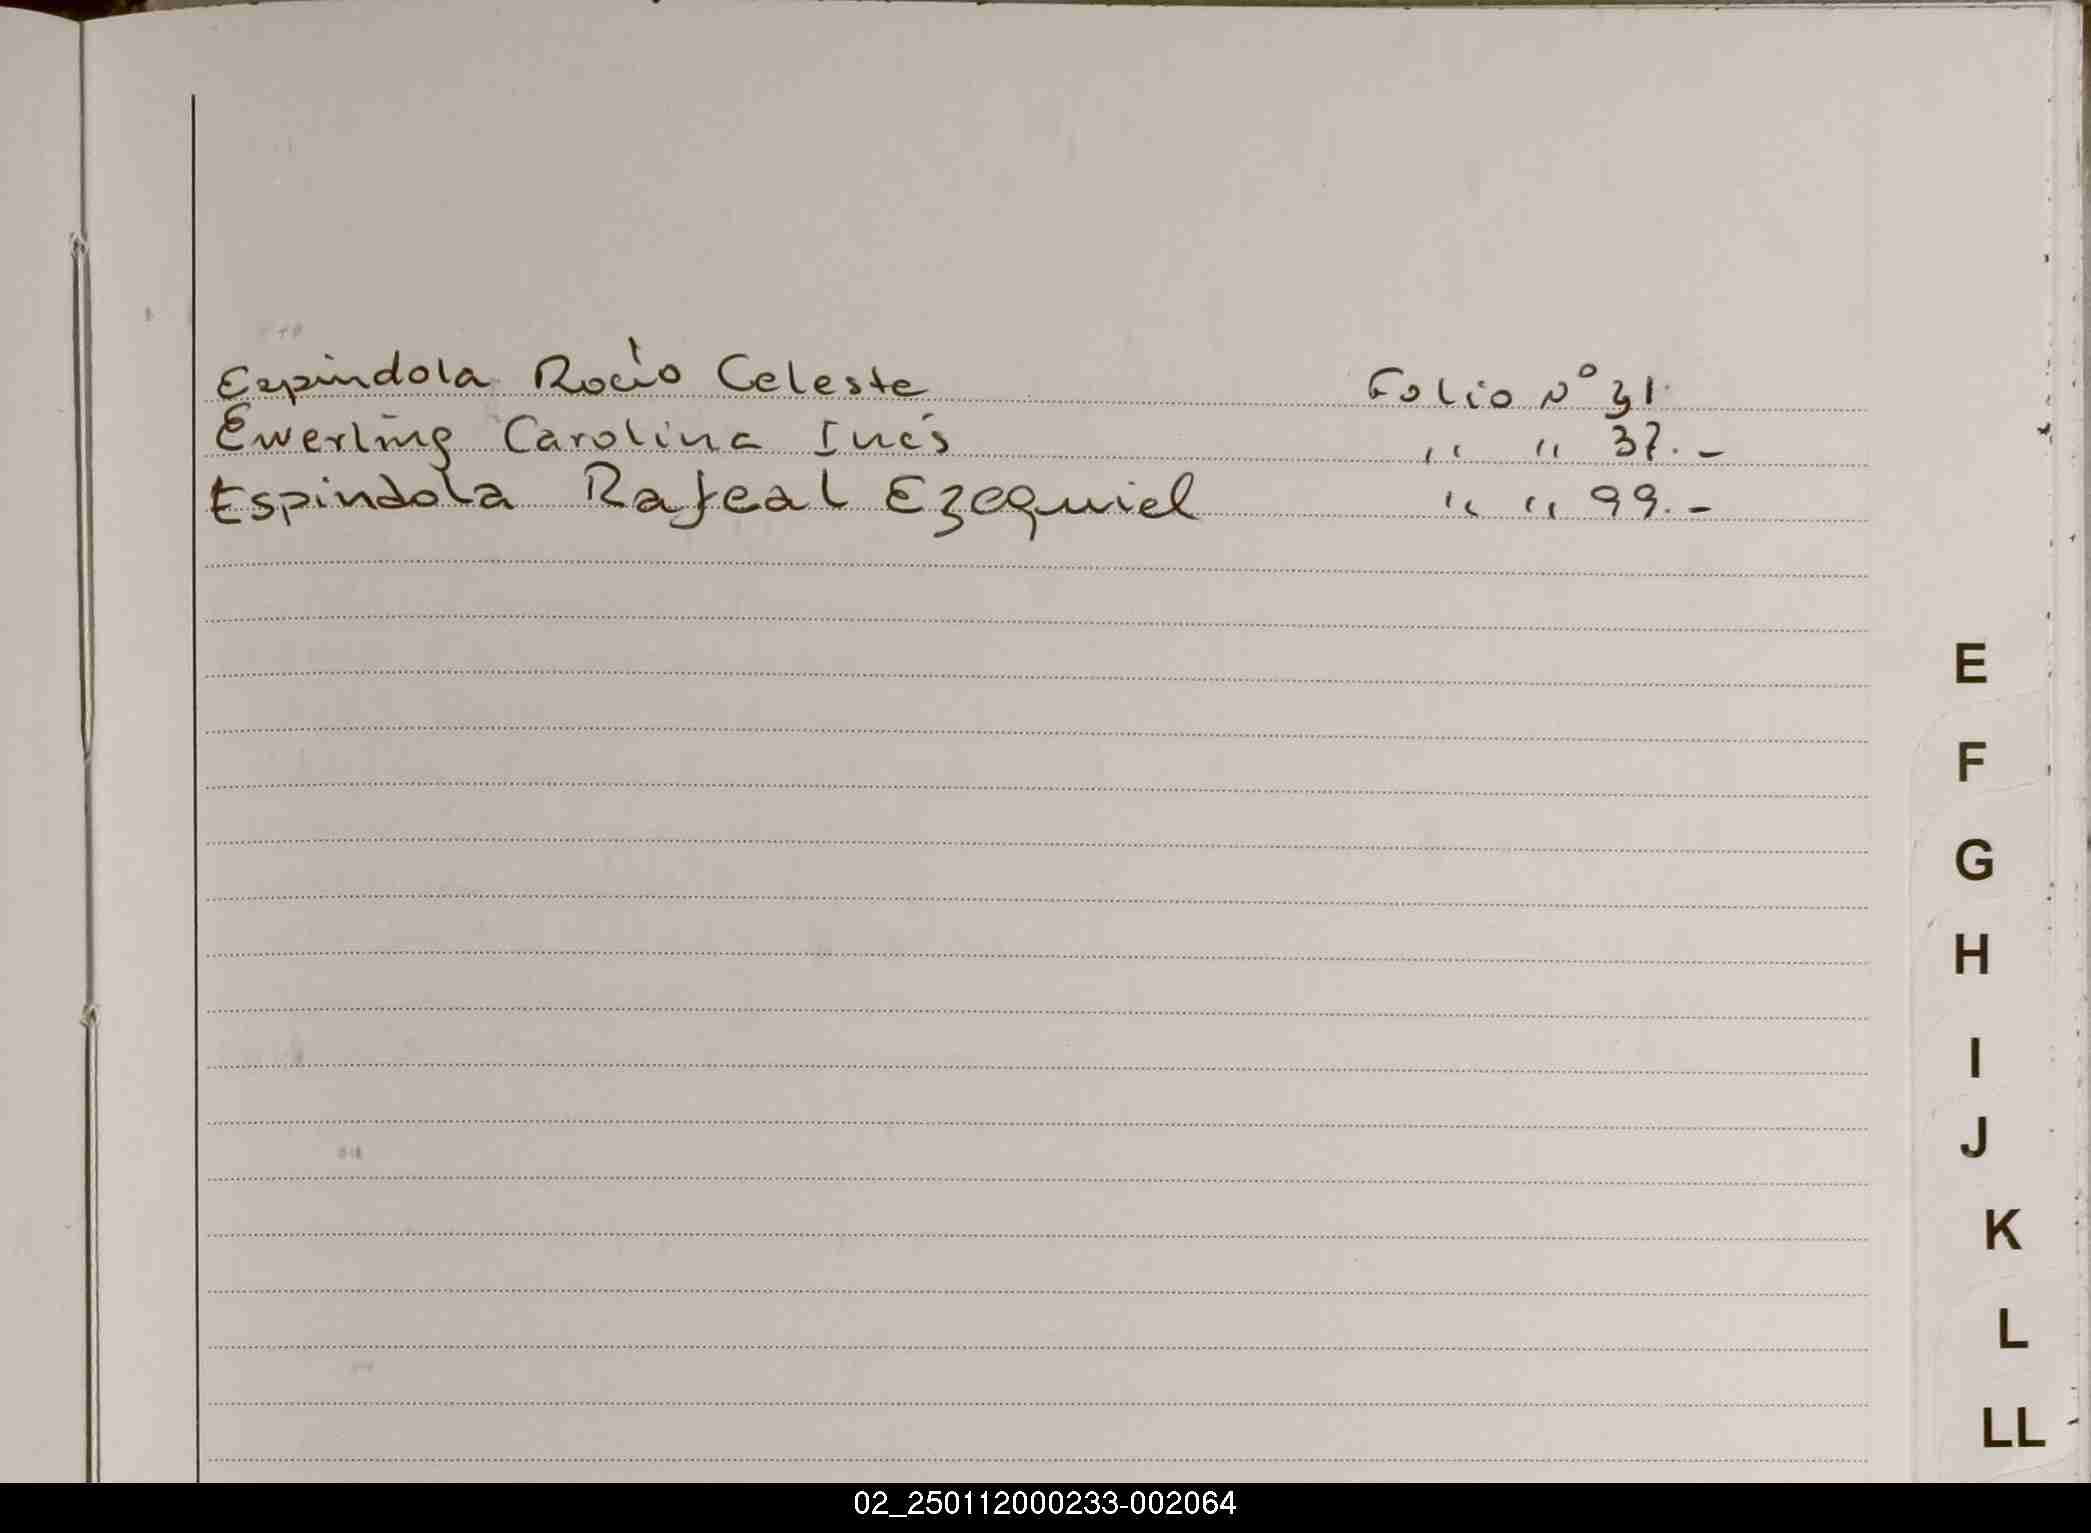 Espindola Rocío Celeste Folio Nº 31.
Ewerling Carolina Inés " " 37.-
Espindola Rafeal Ezequiel " " 99.-
E
F
G
H
I
J
K
L
LL
02_250112000233-002064